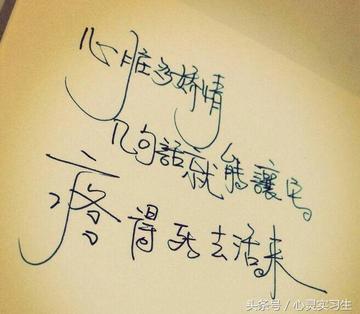 心脏多娇情
几句話就能讓它
疼得死去活来
头条号/心灵实习生